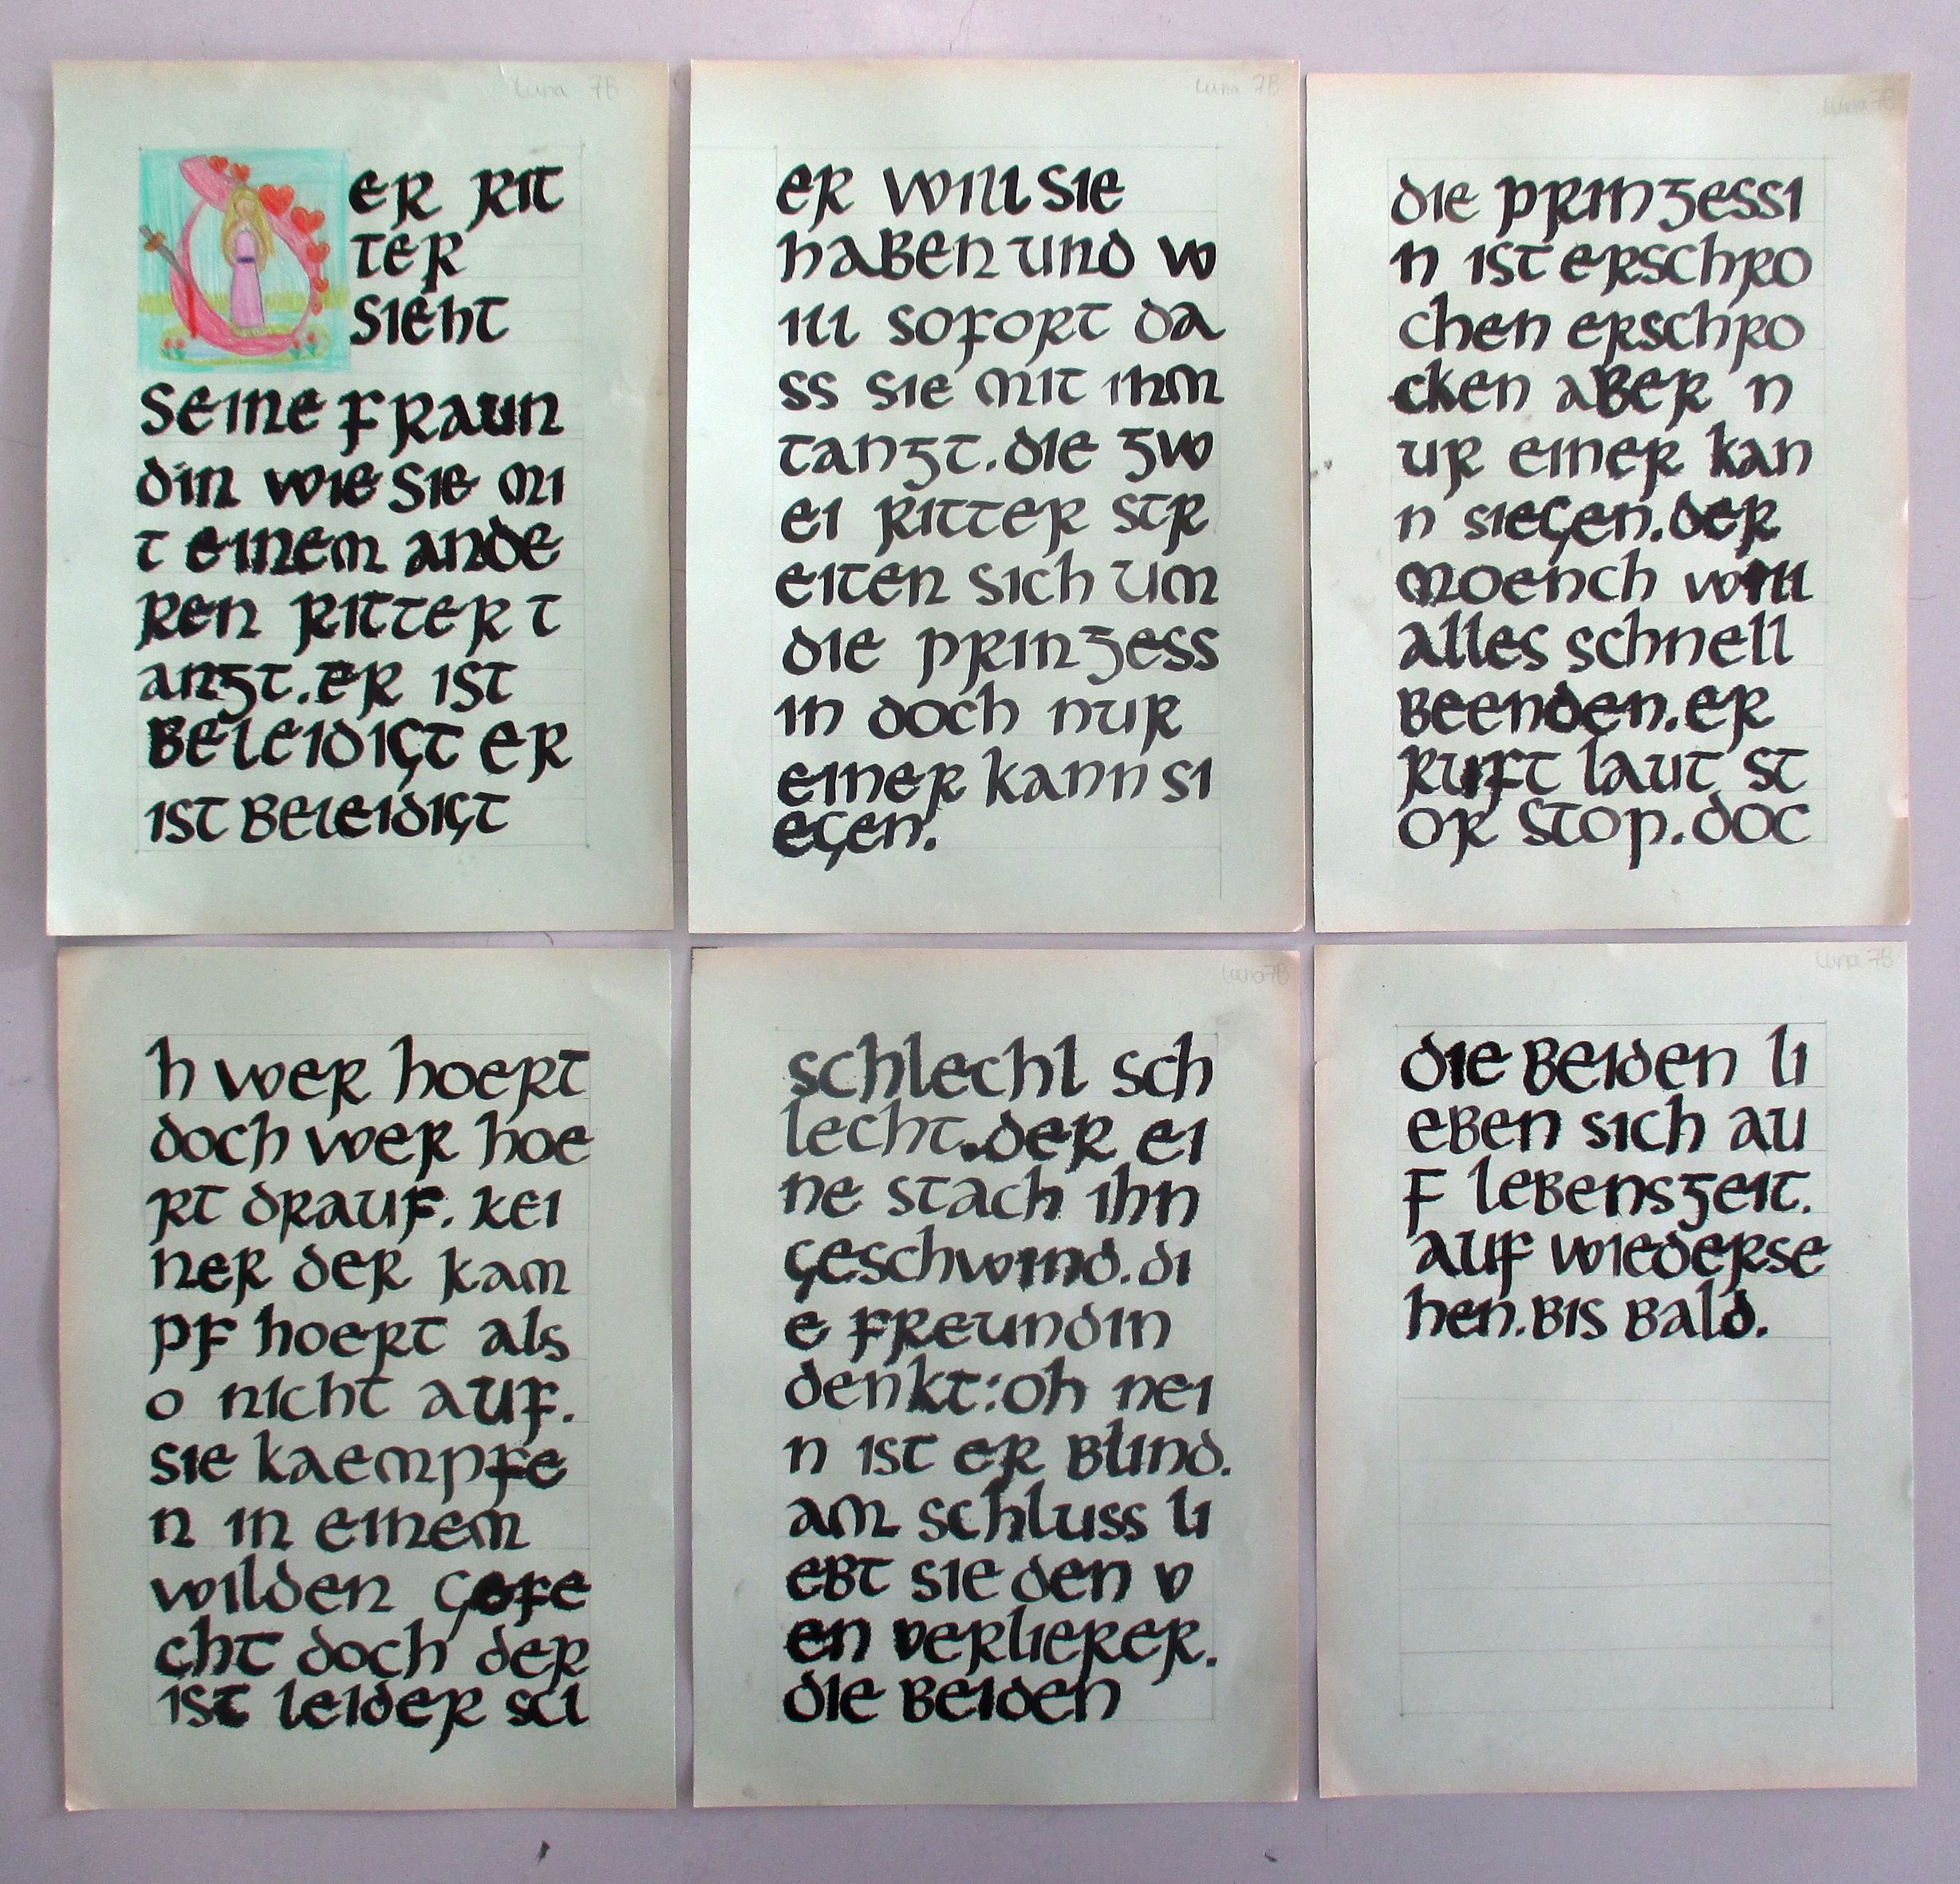 Luna 7B
DER RIT
TER
SIEHT
SEINE FRAUN
DIN WIE SIE MI
T EINEM ANDE
REN RITTER T
ANZT. ER IST
BELEIDIGT ER
IST BELEIDIGT
Luna 7B
ER WILL SIE
HABEN UND W
ILL SOFORT DA
SS SIE MIT IHM
TANZT. DIE ZW
EI RITTER STR
EITEN SICH UM
DIE PRINZESS
IN DOCH NUR
EINER KANN SI
EGEN.
Luna 7B
DIE PRINZESSI
N IST ERSCHRO
CHEN ERSCHRO
CKEN ABER N
UR EINER KAN
N SIEGEN. DER
MOENCH WILL
ALLES SCHNELL
BEENDEN. ER
RUFT LAUT ST
OR STOP. DOC
H WER HOERT
DOCH WER HOE
RT DRAUF. KEI
NER DER KAM
PF HOERT ALS
O NICHT AUF.
SIE KAEMPFE
N IN EINEM
WILDEN GEFE
CHT DOCH DER
IST LEIDER SCL
Luna 7B
SCHLECHL SCH
LECHT. DER EI
NE STACH IHN
GESCHWIND. DI
E FREUNDIN
DENKT: OH NEI
N IST ER BLIND.
AM SCHLUSS LI
EBT SIE DEN V
EN VERLIERER.
DIE BEIDEN
Luna 7B
DIE BEIDEN LI
EBEN SICH AU
F LEBENSZEIT.
AUF WIEDERSE
HEN. BIS BALD.